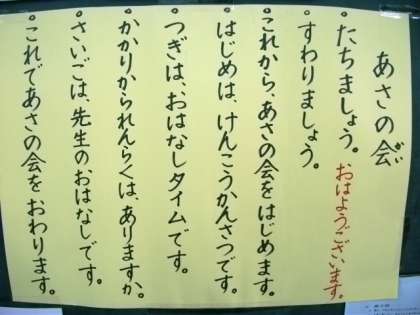 あさの会
かい
・たちましょう。おはようございます。
・すわりましょう。
・これから、あさの会をはじめます。
・はじめは、けんこうかんさつです。
・つぎは、おはなしタイムです。
・かかりかられんらくは、ありますか。
・さいごは、先生のおはなしです。
・これであさの会をおわります。